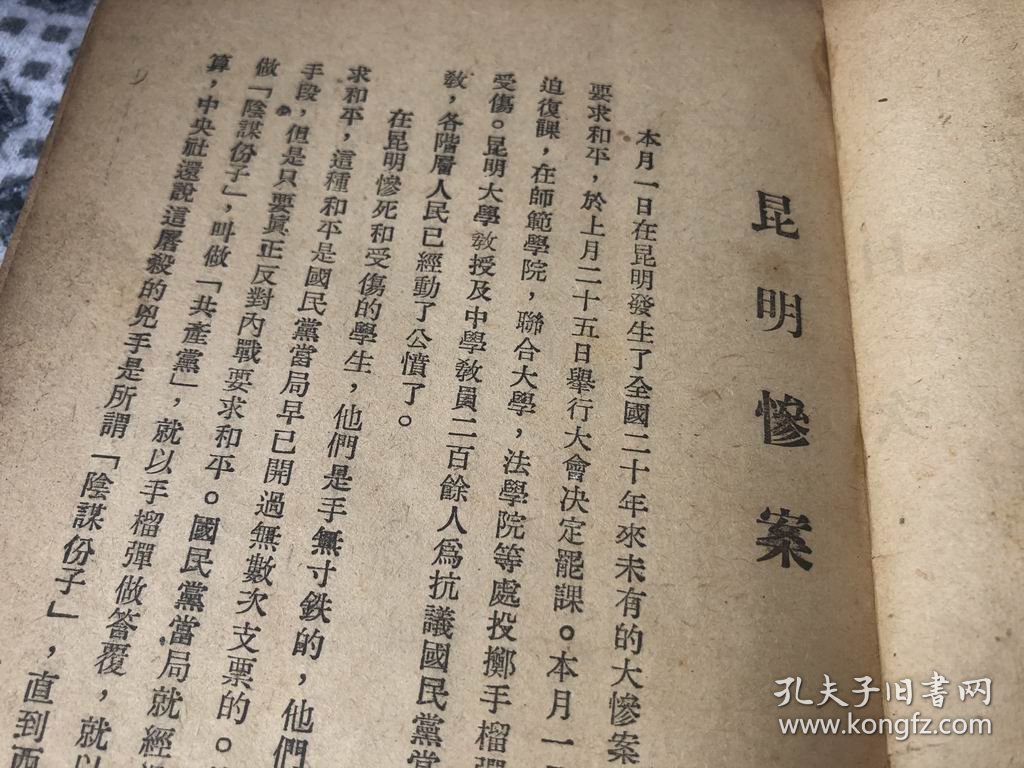 昆明慘案
本月一日在昆明發生了全國二十年來未有的大慘案
要求和平，於上月二十五日舉行大會決定罷課。本月一
迫復課，在師範學院，聯合大學，法學院等處投擲手榴
受傷。昆明大學教授及中學教員二百餘人爲抗議國民黨
教，各階層人民已經動了公憤了。
在昆明慘死和受傷的學生，他們是手無寸鉄的，他們
求和平，這種和平是國民黨當局早已開過無數次支票的。
手段，但是只要眞正反對內戰要求和平。國民黨當局就經
做「陰謀份子」，叫做「共產黨」，就以手榴彈做答覆，就以
算，中央社還說這屠殺的兇手是所謂「陰謀份子」，直到西
孔夫子旧书网
www.kongfz.com